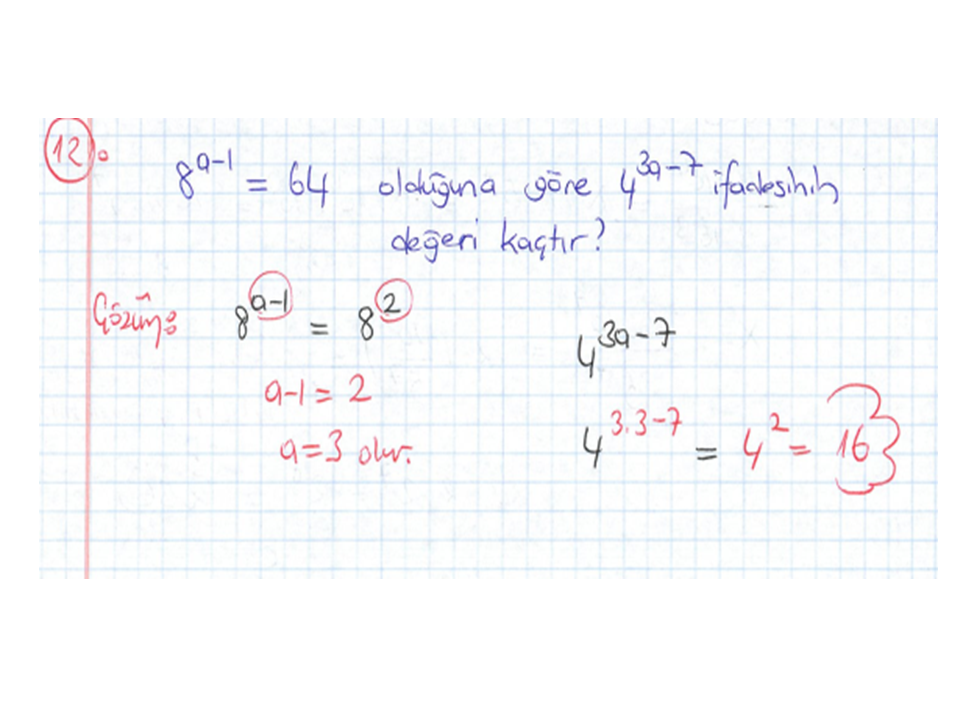 12. 8^{a-1} = 64 olduğuna göre 4^{3a-7} ifadesinin
değeri kaçtır?
Çözüm: 8^{a-1} = 8^{2}
a-1 = 2
a=3 olur.
4^{3a-7}
4^{3.3-7} = 4^{2} = 16